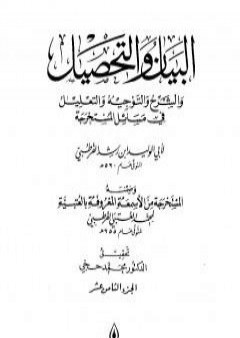 البيان والتحصيل
والشرح والتوجيه والتعليل
في مسائل المستخرجة
لأبي الوليد ابن رشد القرطبي
المتوفى عام ٥٢٠هـ
وضمنه
المستخرجة من الأسمعة المعروفة بالعتبية
لمحمد العتبي القرطبي
المتوفى عام ٢٥٥هـ
تحقيق
الدكتور محمد حجي
الجزء الثامن عشر